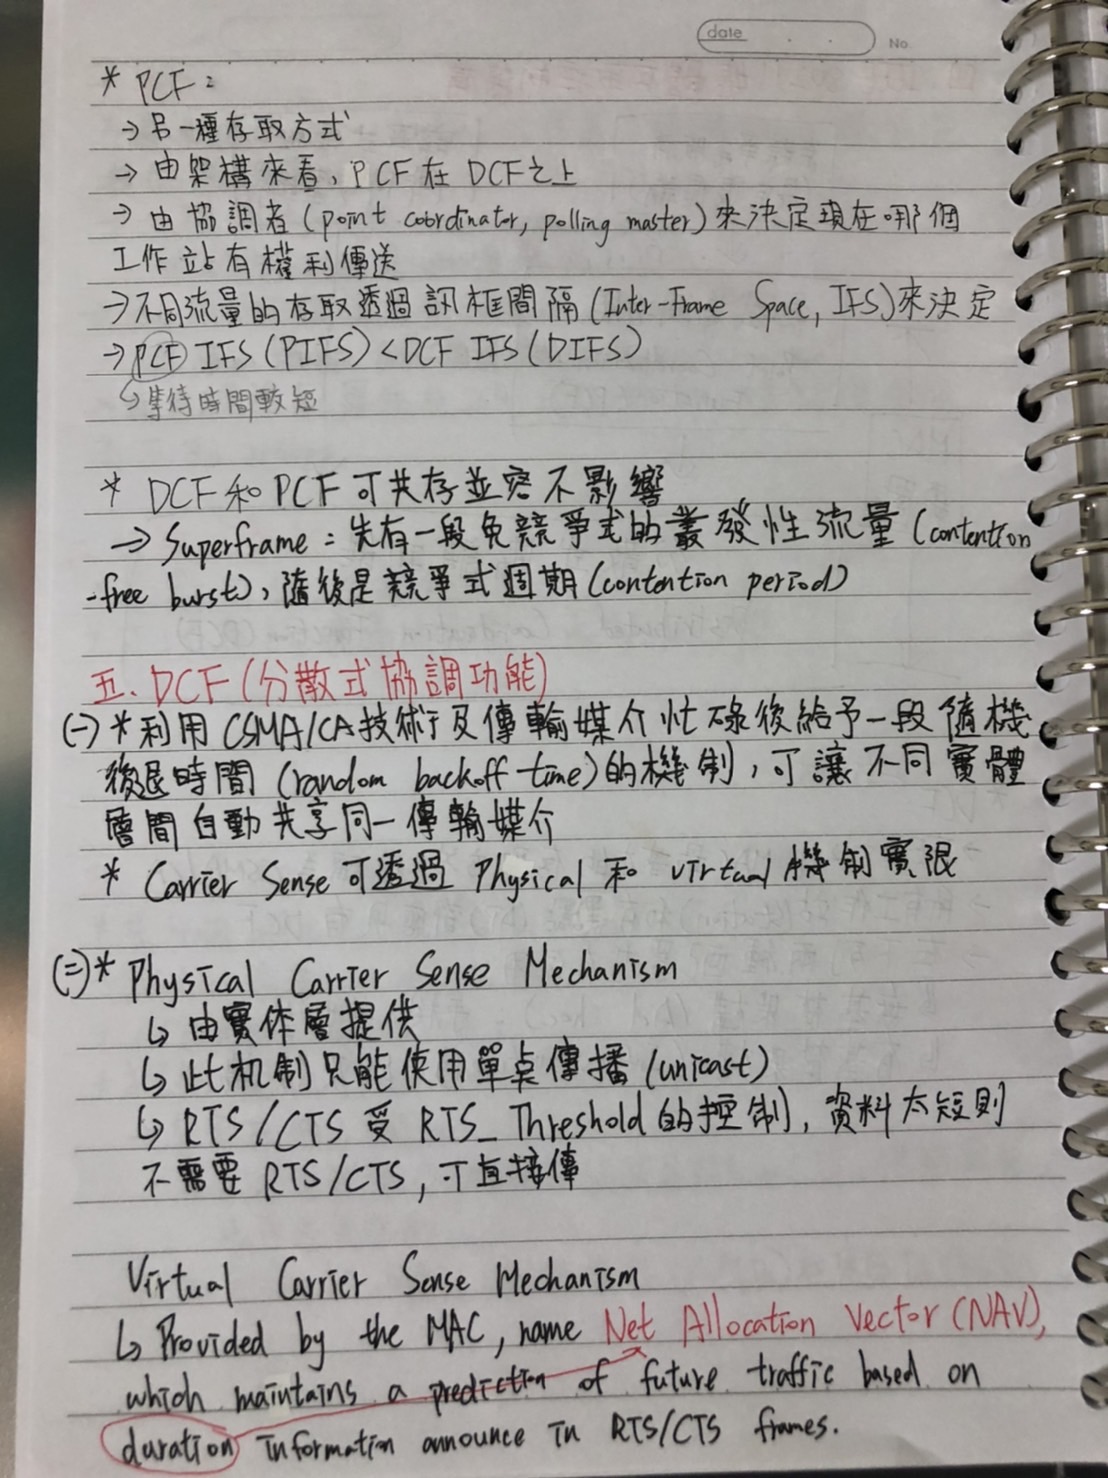 date
No.
* PCF:
→ 另一種存取方式
→ 由架構來看, PCF 在 DCF之上
→ 由協調者(point coordinator, polling master)來決定現在哪個
工作站有權利傳送
→不同流量的存取透過訊框間隔(Inter-Frame Space, IFS)來決定
→ PCF IFS (PIFS) < DCF IFS (DIFS)
↳等待時間較短
* DCF 和 PCF 可共存並容不影響
→ Superframe: 先有一段免競爭式的叢發性流量(contention
-free burst), 隨後是競爭式週期(contention period)
五. DCF (分散式協調功能)
(一) * 利用 CSMA/CA技術及傳輸媒介忙碌後給予一段隨機
後退時間 (random backoff time)的機制, 可讓不同實體
層間自動共享同一傳輸媒介
* Carrier Sense 可透過 Physical 和 virtual 機制實限
(二)* Physical Carrier Sense Mechanism
↳ 由實体層提供
↳ 此机制只能使用單點傳播(unicast)
↳ RTS/CTS 受 RTS_Threshold 的控制, 資料太短則
不需要 RTS/CTS, 可直接傳
Virtual Carrier Sense Mechanism
↳ Provided by the MAC, name Net Allocation Vector (NAV),
which maintains a prediction of future traffic based on
duration information announce in RTS/CTS frames.